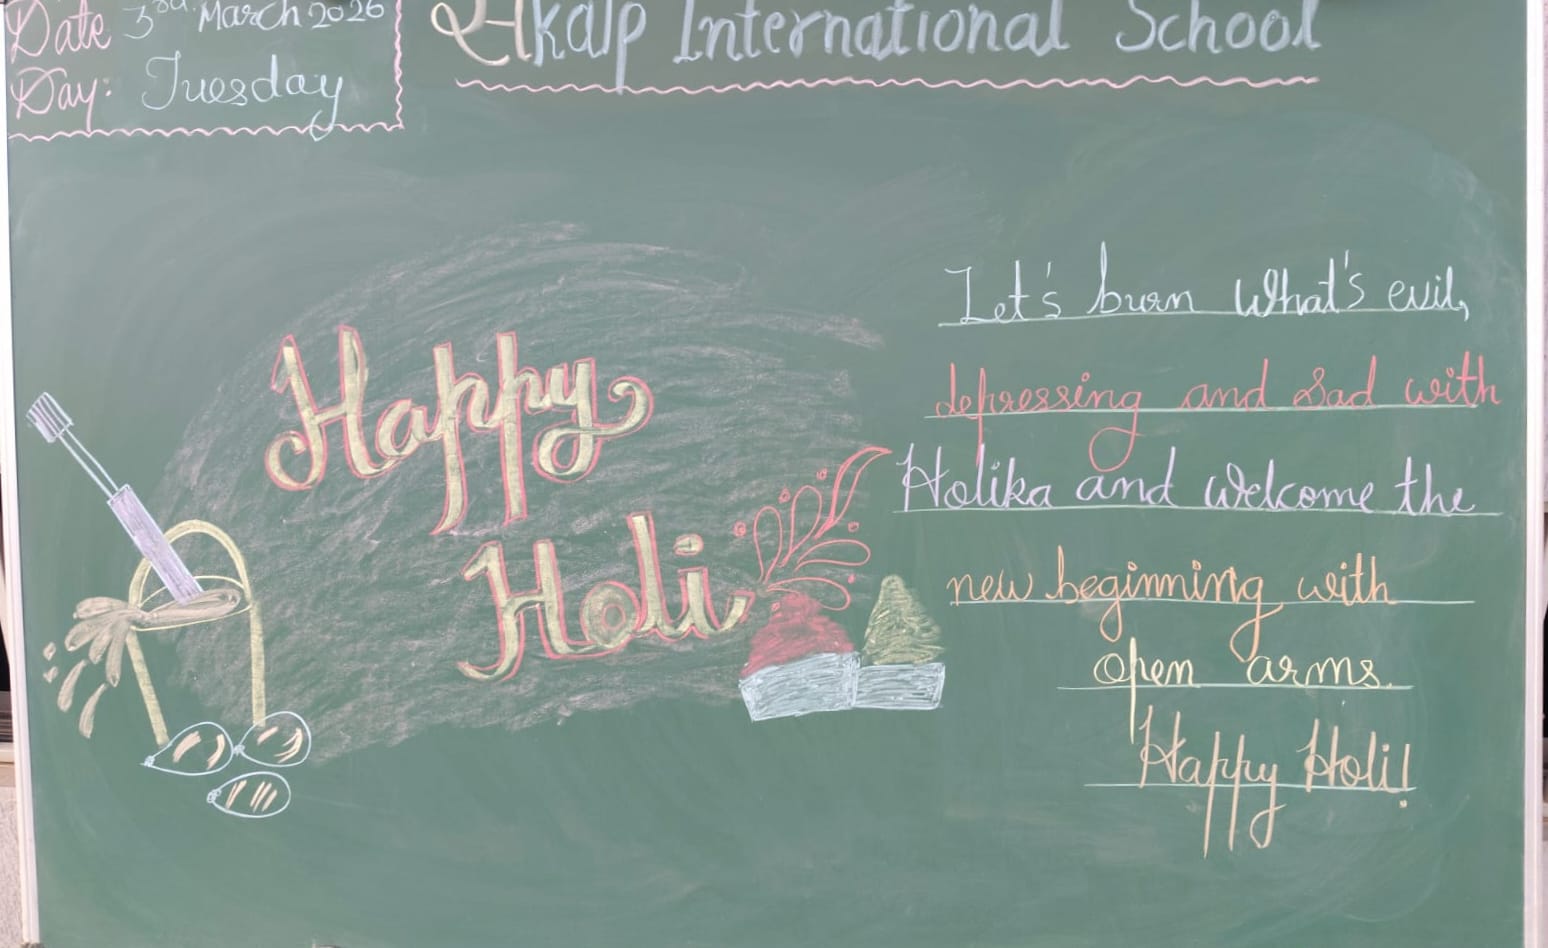 Date 3rd March 2026
Day: Tuesday
Akalp International School
Happy
Holi
Let's burn What's evil,
depressing and Sad with
Holika and welcome the
new beginning with
open arms.
Happy Holi!